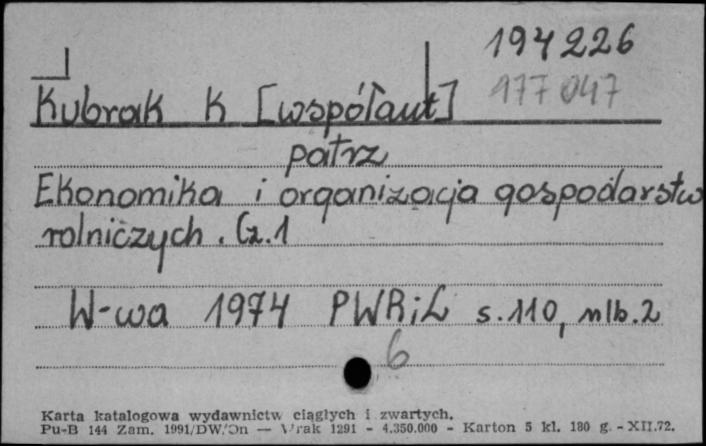 194226
177047
Kubrak K [współaut]
patrz
Ekonomika i organizacja gospodarstw
rolniczych. Cz.1
W-wa 1974 PWRiL s.110, nlb.2
6
Karta katalogowa wydawnictw ciągłych i zwartych.
Pu-B 144 Zam. 1991/DW/On — Vrak 1291 - 4.350.000 - Karton 5 kl. 180 g. - XII.72.